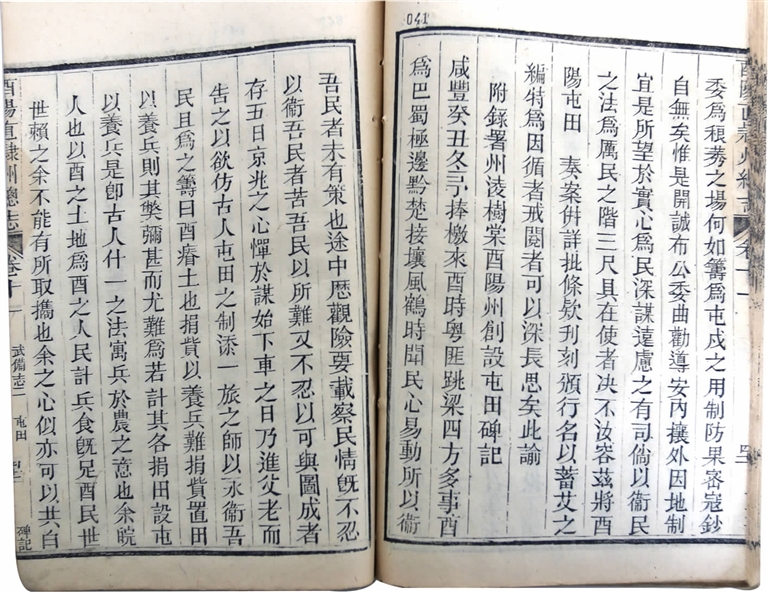 041
酉陽直隸州總志 卷十一
委爲稂莠之場何如籌爲屯戍之用制防果密寇鈔
自無矣惟是開誠布公委曲勸導安內攘外因地制
宜是所望於實心爲民深謀遠慮之有司倘以衞民
之法爲厲民之階三尺具在使者决不汝容茲將酉
陽屯田 奏案倂詳批條欵刋刻頒行名以蓄艾之
編特爲因循者戒閱者可以深長思矣此諭
附錄署州淩樹棠酉陽州創設屯田碑記
咸豐癸丑冬予捧檄來酉時粤匪跳梁四方多事酉
爲巴蜀極邊黔楚接壤風鶴時聞民心易動所以衞
吾民者未有策也途中歷觀險要載察民情旣不忍
以衞吾民者苦吾民以所難又不忍以可與圖成者
存五日京兆之心憚於謀始下車之日乃進父老而
告之以欲仿古人屯田之制添一旅之師以永衞吾
民且爲之籌曰酉瘠土也捐貲以養兵難捐貲置田
以養兵則其獘彌甚而尤難爲若計其各捐田設屯
以養兵是卽古人什一之法寓兵於農之意也余皖
人也以酉之土地爲酉之人民計兵食旣足酉民世
世賴之余不能有所取攜也余之心似亦可以共白
酉陽直隸州總志 卷十一 武備志二 屯田 碑記